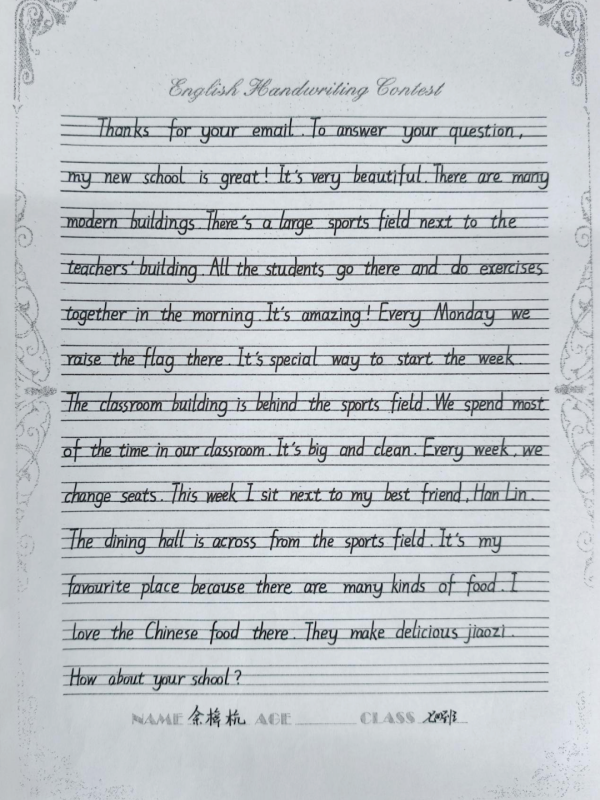 English Handwriting Contest
Thanks for your email. To answer your question,
my new school is great! It's very beautiful. There are many
modern buildings. There's a large sports field next to the
teachers' building. All the students go there and do exercises
together in the morning. It's amazing! Every Monday we
raise the flag there. It's special way to start the week.
The classroom building is behind the sports field. We spend most
of the time in our classroom. It's big and clean. Every week, we
change seats. This week I sit next to my best friend, Han Lin.
The dining hall is across from the sports field. It's my
favourite place because there are many kinds of food. I
love the Chinese food there. They make delicious jiaozi.
How about your school?
NAME 余梓杭 AGE CLASS